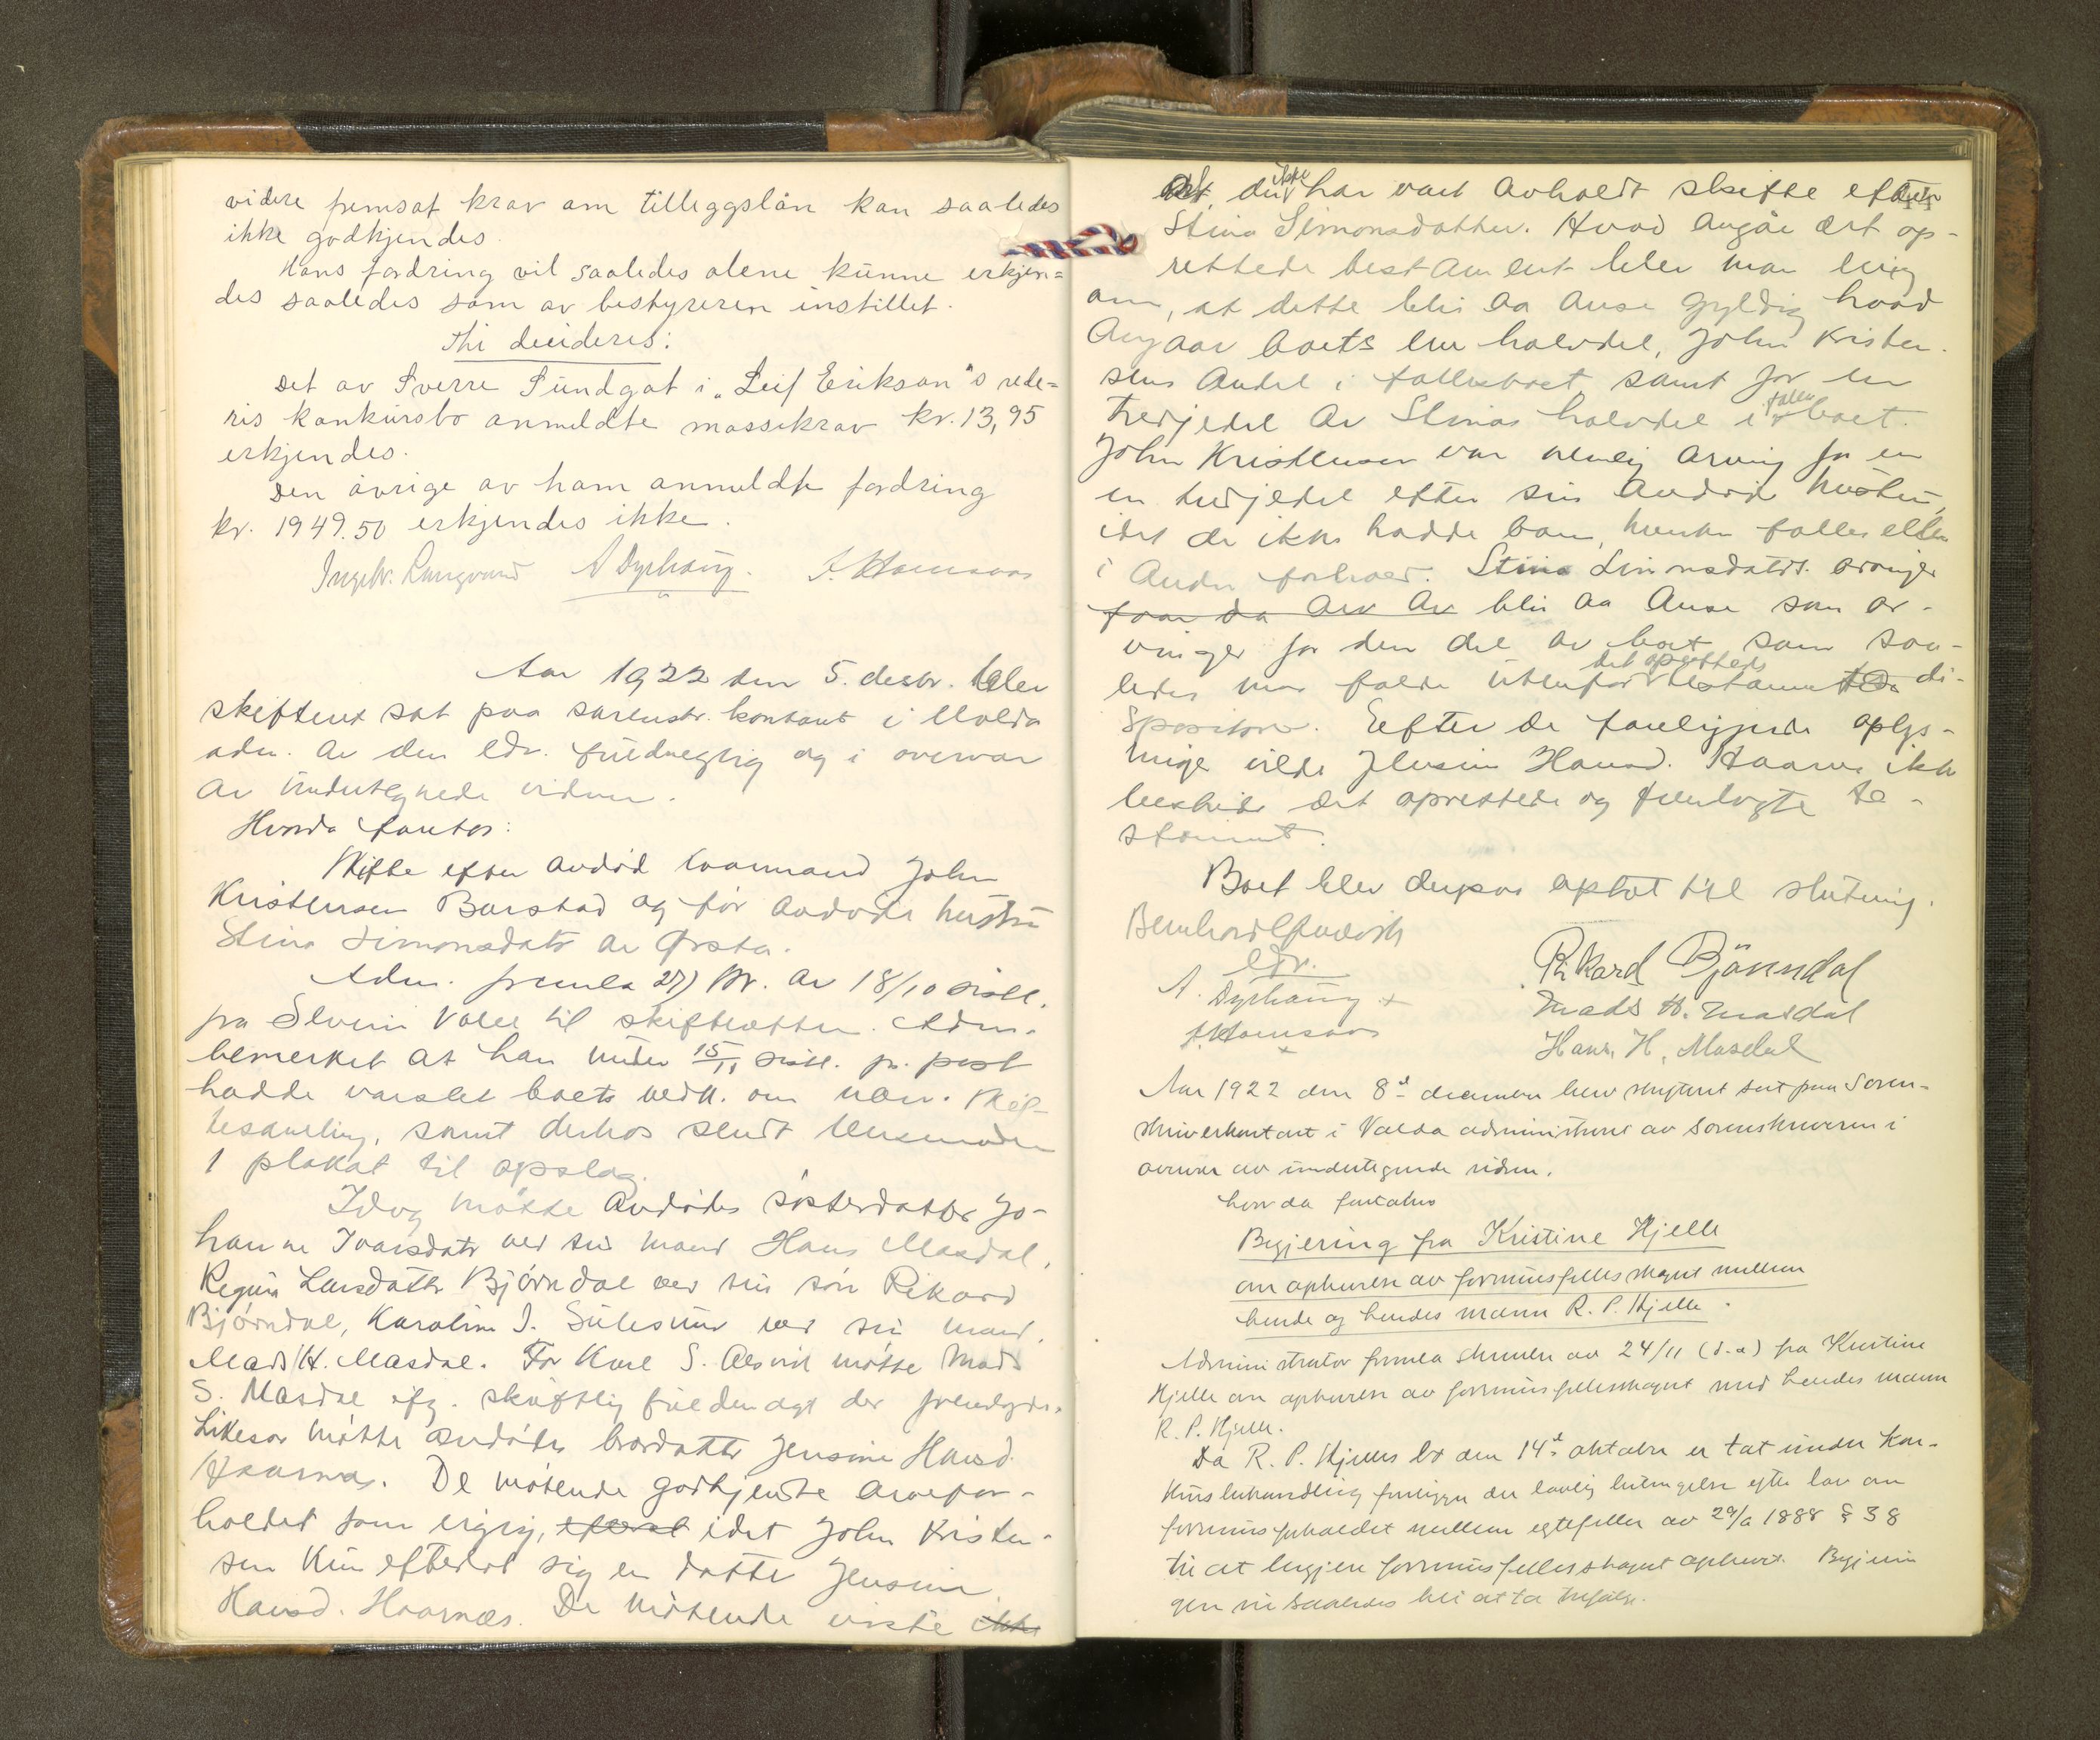 videre fremsat krav om tilleggslån kan saaledes
ikke godkjendes.
Hans fordring vil saaledes alene kunne erkjen=
des saaledes som av bestyreren instillet.
Thi decideres:
Det av Sverre Sundgot i "Leif Erikson"s rede=
ris konkursbo anmeldte massekrav kr. 13,95
erkjendes.
Den øvrige av ham anmeldte fordring
kr. 1949.50 erkjendes ikke.
A Dyrhaug.
Aar 1922 den 5. desbr. blev
skifteret sat paa sorenskr. kontoret i Volda
adm. av den edv. fuldmegtig og i overvær
av undertegnede vidner.
Hvorda foretos:
Skifte efter avdød kaarmand John
Kristensen Barstad og før avdøde hustru
Stina Simonsdatr av Ørsta.
Adm. fremla 27) br. av 18/10 sistl.
fra Elvevi til skifteretten. Adm.
bemerket at han under 15/11 sistl. pr. post
hadde varslet boets vedk. om nærv. skif-
tesamling, samt derhos sendt lensmanden
1 plakat til opslag.
Idag møtte avdødes søsterdatter Jo-
hanne Ivarsdatr ved sin mand Hans Masdal,
Regina Larsdatter Bjørndal ved sin søn Rikard
Bjørndal, Karoline J. ved sin mand
Mads H. Masdal. For Karl S. møtte Mads
S. Masdal efg. skriftlig fuldmagt der fremlegdes.
Likesaa møtte avdødes brordatter Jensine Hansd.
Haarnes. De møtende godkjente arvefor-
holdet som rigtig, idet John Kristen-
sen kun efterlot sig en datter Jensine
Hansd. Haarnæs. De møtende viste ikke
at, det ikke har vært avholdt skifte efter
Stina Simonsdatter. Hvad angår det op-
rettede testament blev man enig
om, at dette blir aa anse gyldig hvad
angaar boets ene halvdel, John Kristen-
sens andel i fællesboet samt for en
tredjedel av Stinas halvdel i fælles boet.
John Kristensen var nemlig arving for en
en tredjedel efter sin avdøde hustru,
idet de ikke hadde barn, hverken fælles eller
i andre forhold. Stina Simonsdatrs. arvinger
faar da arv av blir aa anse som ar-
vinger for den del av boet som saa-
ledes maa falde utenfor det oprettede testamentes di-
sposition. Efter de foreliggende oplys-
ninger vilde Jensine Hansd. Haarnes ikke
beskride det oprettede og fremlagte te-
stament.
Boet blev derpaa optat til slutning.
edv.
A. Dyrhaug +
Rikard Bjørndal
Mads H. Masdal
Hans, H, Masdal
Aar 1922 den 8de december blev skifteret sat paa soren-
skriverkontoret i Volda administreret av sorenskriveren i
overvær av undertegnede vidner.
hvor da foretages
Begjering fra Kristine Hjelle
om ophævelse av formuesfellesskapet mellem
hende og hendes mann R. P. Hjelle.
Administrator fremla skrivelse av 24/11 (d.a) fra Kristine
Hjelle om ophævelse av formuesfellesskapet med hendes mann
R. P. Hjelle.
Da R. P. Hjelles bo den 14de oktober er tat under kon-
kursbehandling foreligger der lovlig betingelse efter lov om
formuesforholdet mellem egtefeller av 29/6 1888 § 38
til at begjere formuesfellesskapet ophævet. Begjerin
gen vil saaledes bli at ta tilfølge.